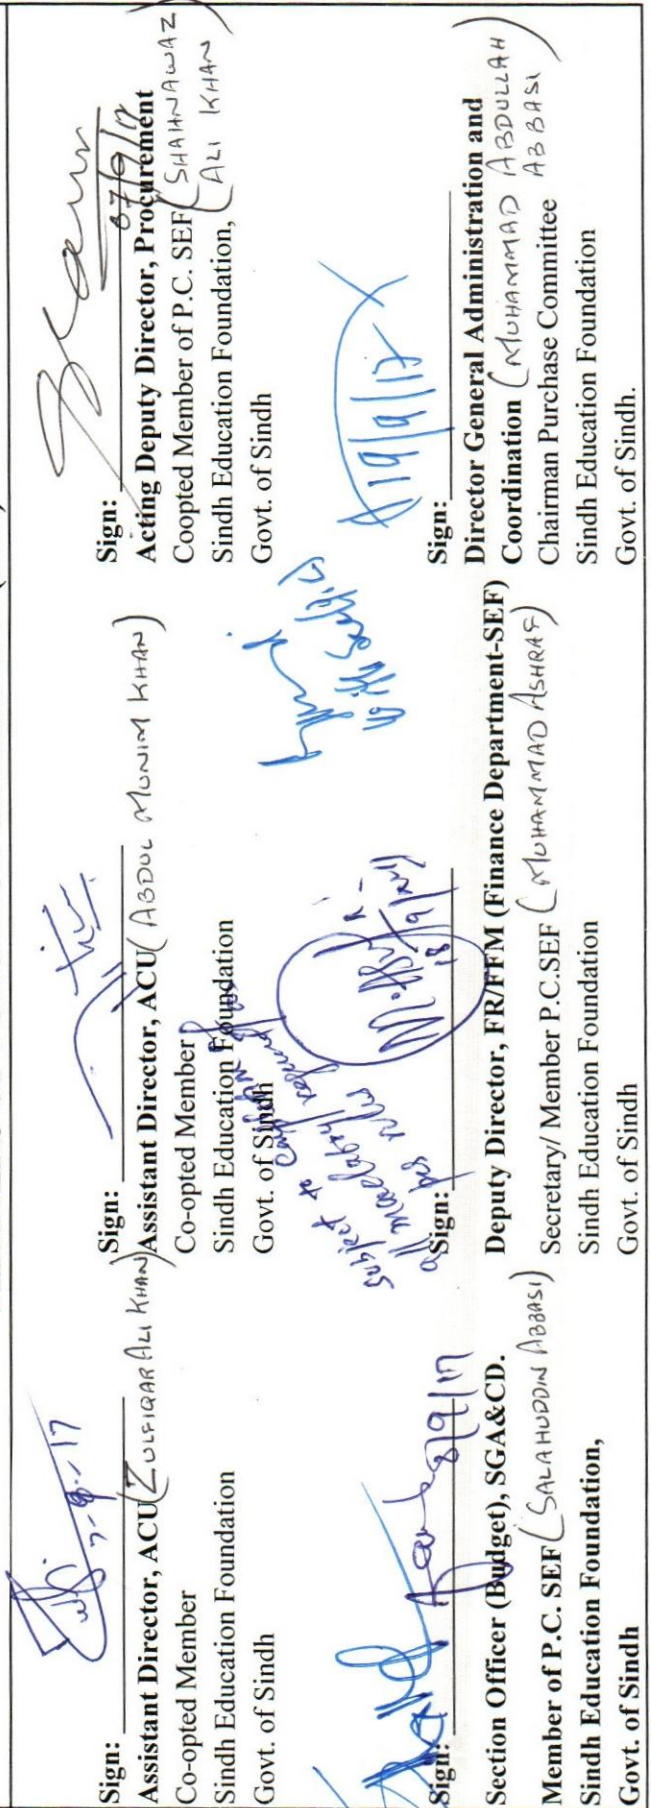 Sign:
7-9-17
Assistant Director, ACU (ZULFIQAR ALI KHAN)
Co-opted Member
Sindh Education Foundation
Govt. of Sindh
Sign:
Assistant Director, ACU (ABDUL MUNIM KHAN)
Co-opted Member
Sindh Education Foundation
Govt. of Sindh
Sign:
07/9/17
Acting Deputy Director, Procurement
Coopted Member of P.C. SEF (SHAHNAWAZ
ALI KHAN)
Sindh Education Foundation,
Govt. of Sindh
Sign:
8/9/17
Section Officer (Budget), SGA&CD.
Member of P.C. SEF (SALAHUDDIN ABBASI)
Sindh Education Foundation,
Govt. of Sindh
Subject to
all
per rules
Sign:
18/9/2017
Deputy Director, FR/FFM (Finance Department-SEF)
Secretary/ Member P.C.SEF (MUHAMMAD ASHRAF)
Sindh Education Foundation
Govt. of Sindh
Sign:
19/9/17
Director General Administration and
Coordination (MUHAMMAD ABDULLAH
ABBASI)
Chairman Purchase Committee
Sindh Education Foundation
Govt. of Sindh.